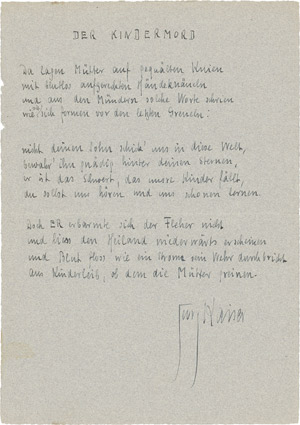 DER KINDERMORD
Da lagen Mütter auf gequälten Knien
mit blutlos aufgereckten Händeknäueln
und aus den Mündern solche Worte schrien
sich formen vor den letzten Greueln:
nicht deinen Sohn schick' uns in diese Welt,
bewahr' ihn gnädig hinter deinen Sternen,
er ist das Schwert, das unsre Kinder fällt,
du sollst uns hören und uns schonen lernen.
Doch ER erbarmte sich der Fleher nicht
und liess den Heiland niederwärts erscheinen
und Blut floss wie ein Strom sein Wehr durchbricht
am Kinderleib, ob dem die Mütter greinen.
Georg Kaiser